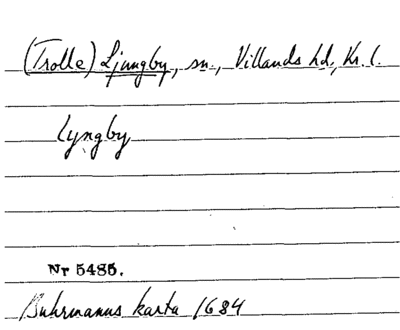 (Trolle) Ljungby, sn., Villands hd., Kr. l.
Lyngby
Nr 5485.
Buhrmanns karta 1684